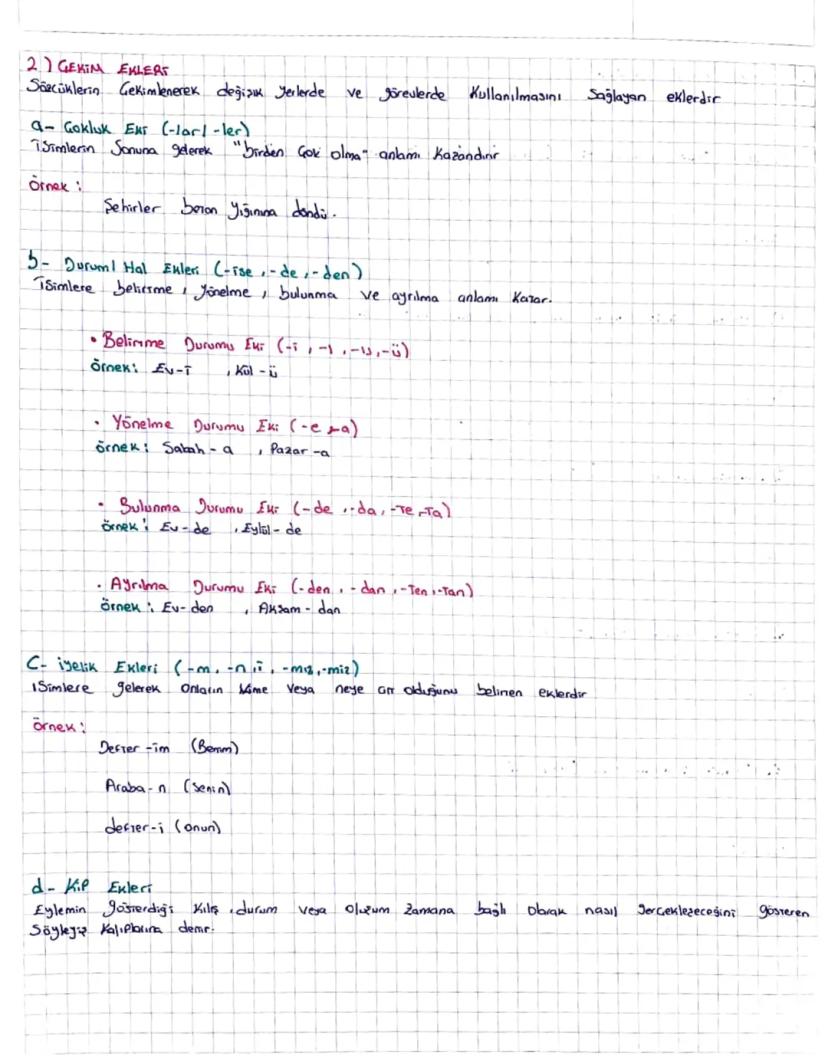 2) ÇEKİM EKLERİ
Sözcüklerin Çekimlenerek değişik yerlerde ve görevlerde Kullanılmasını Sağlayan eklerdir
a- Çokluk Eki (-lar/-ler)
İsimlerin Sonuna gelerek "birden Çok olma" anlamı Kazandırır
örnek:
Şehirler beton Yığınına döndü.
b- Durum/ Hal Ekleri (-ise, -de, -den)
İsimlere belirtme, Yönelme, bulunma ve ayrılma anlamı Katar.
• Belirtme Durumu Eki (-i, -ı, -u, -ü)
örnek: Ev-i , Kül-ü
• Yönelme Durumu Eki (-e, -a)
örnek: Sabah-a , Pazar-a
• Bulunma Durumu Eki (-de, -da, -te, -ta)
örnek: Ev-de , Eylül-de
• Ayrılma Durumu Eki (-den, -dan, -ten, -tan)
örnek: Ev-den , Akşam-dan
C- iyelik Ekleri (-m, -n, i, -mız, -miz)
İsimlere gelerek Onların Kime veya neye ait olduğunu belirten eklerdir
örnek:
Defter-im (Benim)
Araba-n (Senin)
defter-i (onun)
d- Kip Ekleri
Eylemin gösterdiği Kılış, durum veya oluşum Zamana bağlı olarak nasıl Gerçekleşeceğini gösteren
Söyleyiş Kalıplarına denir.